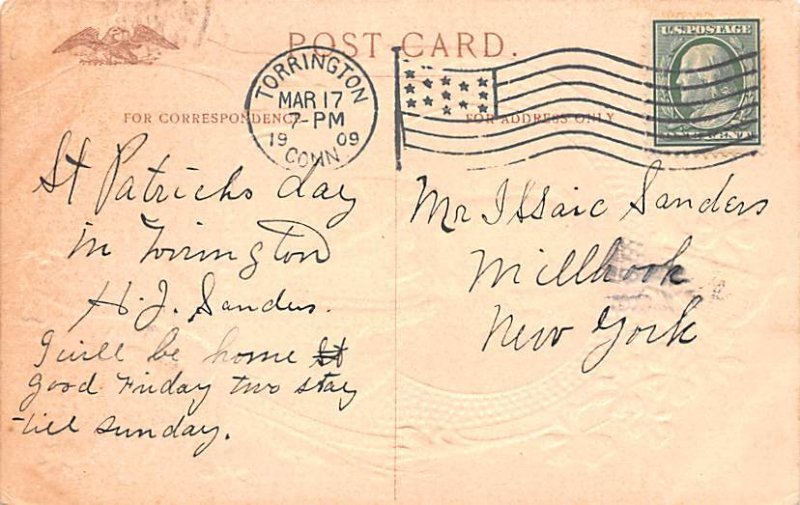 POST CARD.
TORRINGTON
MAR 17
7-PM
1909
CONN
U.S. POSTAGE
FOR CORRESPONDENCE
FOR ADDRESS ONLY
St Patricks day
in Torrington
H. J. Sanders.
I will be home St
good Friday two stay
till sunday.
Mr Issaic Sanders
Millbook
New York